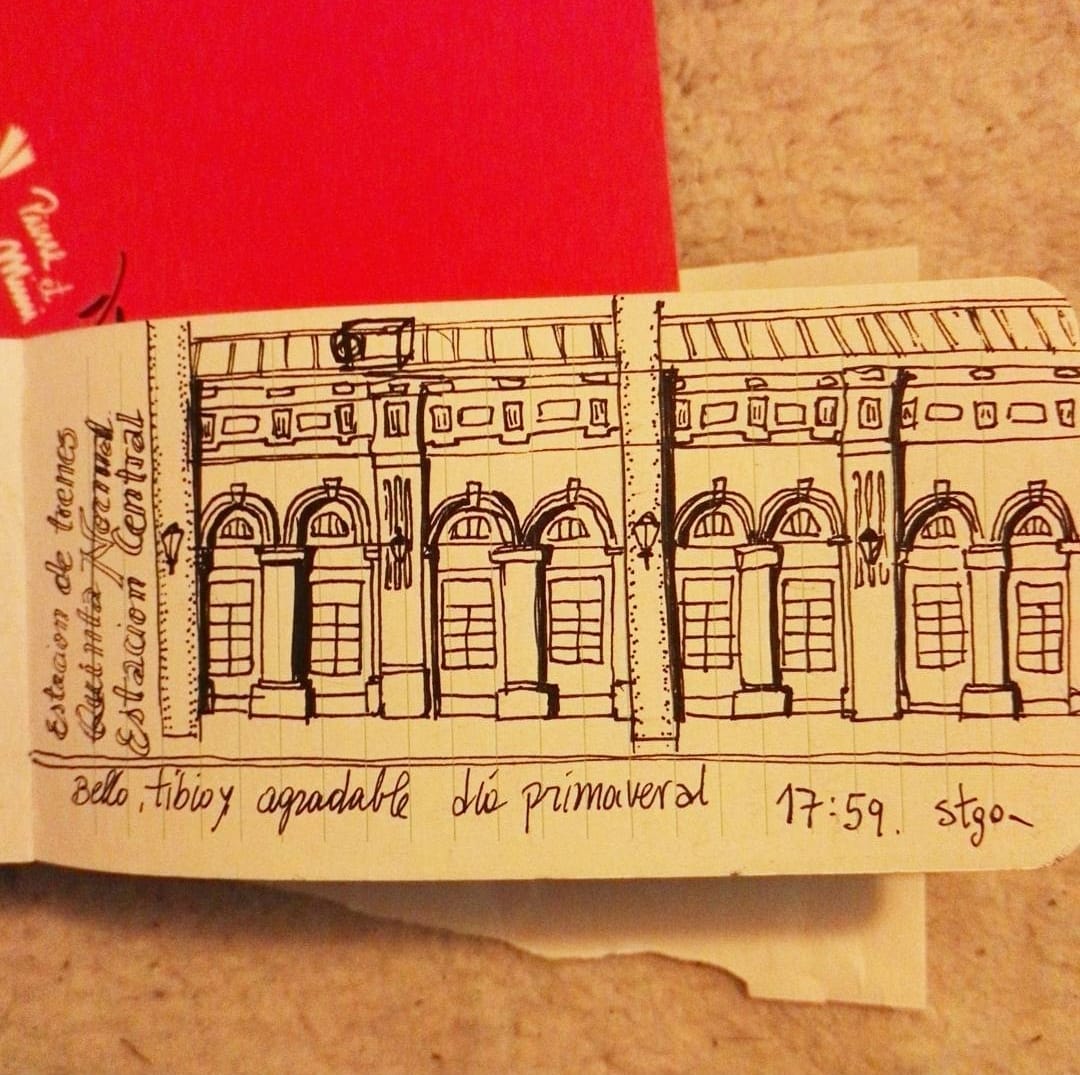 Pierre et
Mimi
Estacion de trenes
Quinta Normal
Estación Central
Bello, tibio y agradable día primaveral 17:59. stgo